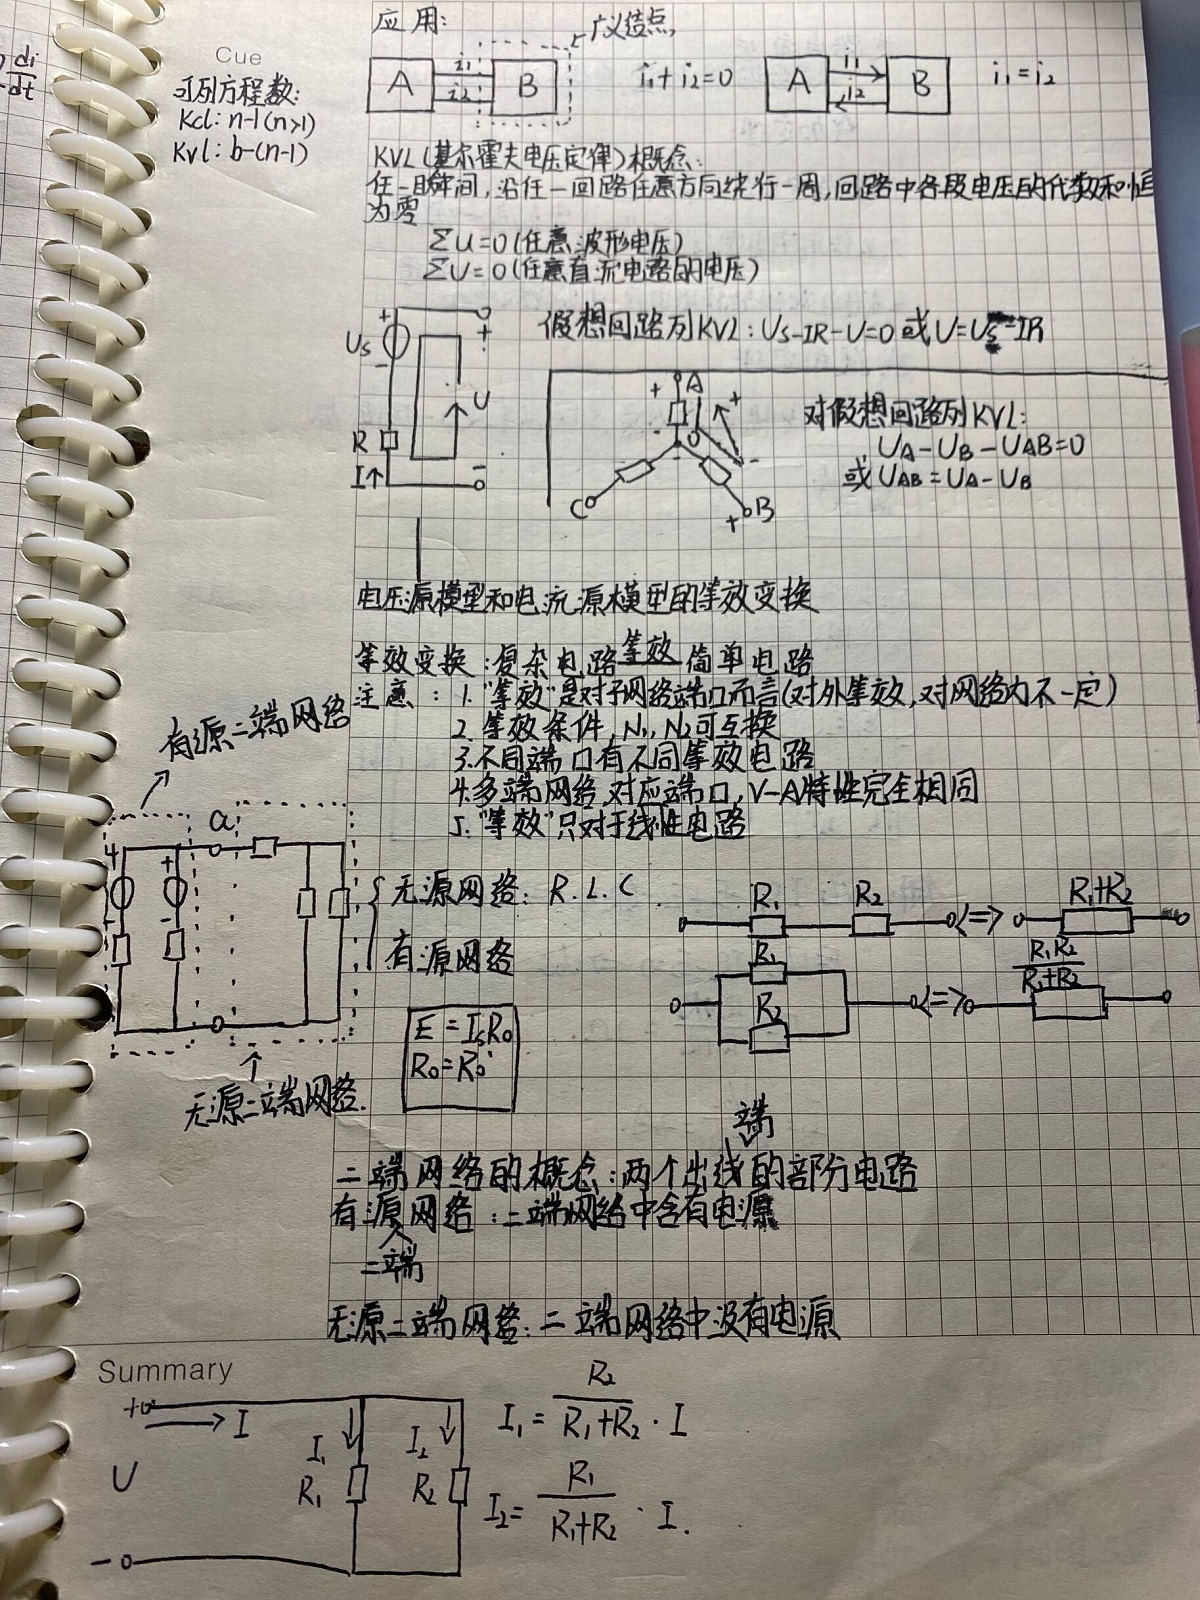 di
dt
Cue
可列方程数:
Kcl: n-1(n>1)
Kvl: b-(n-1)
应用:
广义结点
A
i1
i2
B
i1+i2=0
A
i1
i2
B
i1=i2
KVL(基尔霍夫电压定律)概念:
任一瞬间,沿任一回路任意方向绕行一周,回路中各段电压的代数和恒
为零
Σu=0(任意波形电压)
ΣU=0(任意直流电路的电压)
+
Us
-
R
I↑
+
U
-
假想回路列KVL: Us-IR-U=0 或U=Us-IR
+
A
-
O
+
-
C
+
B
对假想回路列KVL:
UA-UB-UAB=0
或UAB=UA-UB
电压源模型和电流源模型的等效变换
等效变换:复杂电路 等效 简单电路
注意: 1."等效"是对于网络端口而言(对外等效,对网络内不一定)
2.等效条件,N1,N2可互换
3.不同端口有不同等效电路
4.多端网络,对应端口,V-A特性完全相同
5."等效"只对于线性电路
有源二端网络
a
+
-
+
-
无源二端网络.
无源网络: R.L.C
有源网络
E=IsR0
R0=R0'
R1
R2
<=>
R1+R2
R1
R2
<=>
R1R2
R1+R2
端
二端网络的概念:两个出线的部分电路
有源网络:二端网络中含有电源
二端
无源二端网络:二端网络中没有电源
Summary
+
I
U
-
I1
R1
I2
R2
I1= R2/(R1+R2) · I
I2= R1/(R1+R2) · I.